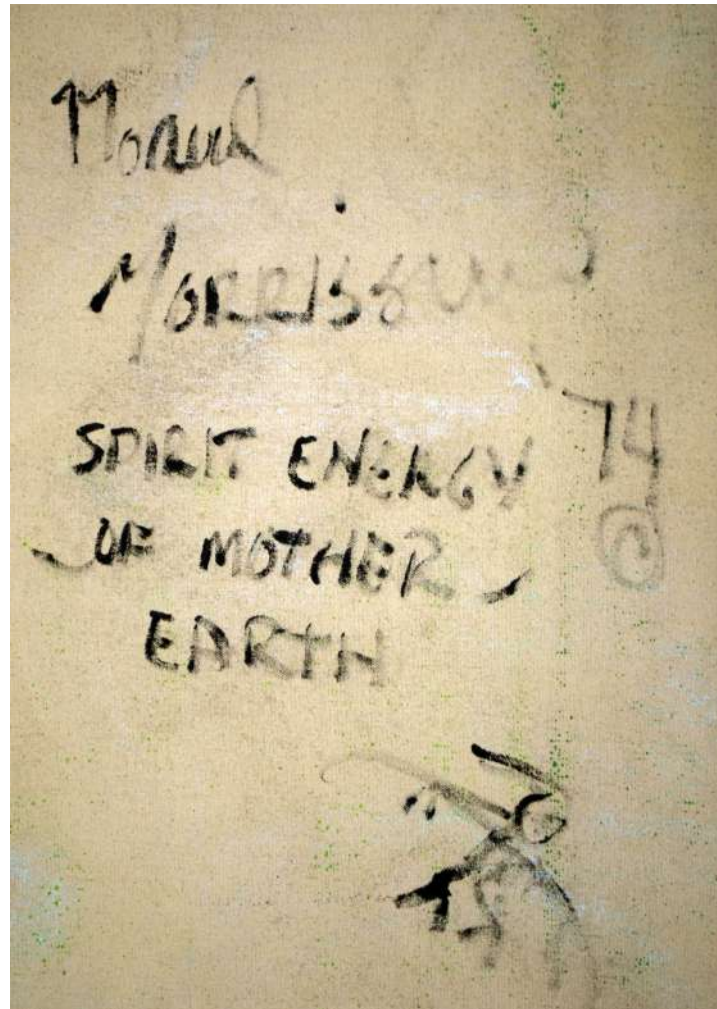 Norval
Morrisseau
'74
SPIRIT ENERGY
OF MOTHER
©
EARTH